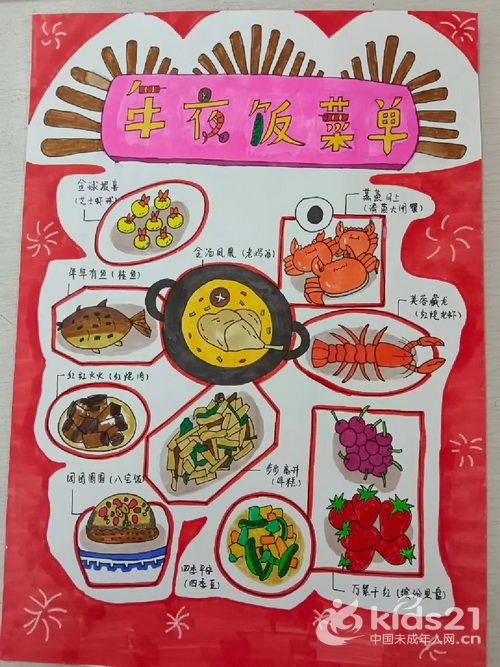 年夜饭菜单
金球报喜
(芝士虾球)
蒸蒸日上
(清蒸大闸蟹)
金汤凤凰(老鸡汤)
年年有鱼(桂鱼)
芙蓉藏龙
(红烧龙虾)
红红火火(红烧肉)
步步高升
(年糕)
团团圆圆(八宝饭)
四季平安
(四季豆)
万紫千红(缤纷果盘)
kids21
中国未成年人网.cn